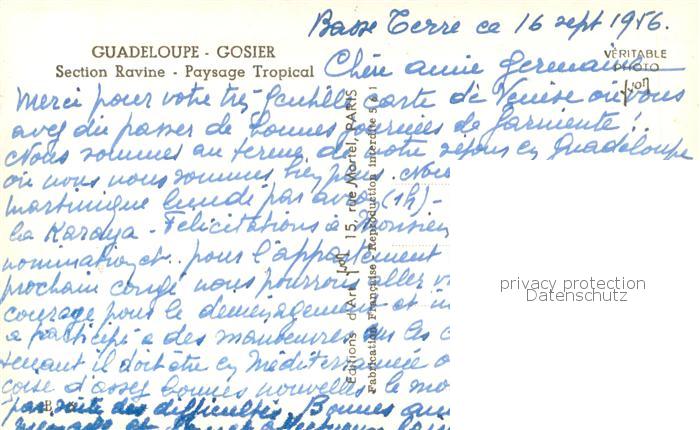 Basse Terre ce 16 sept 1956.
GUADELOUPE - GOSIER
Section Ravine - Paysage Tropical
VÉRITABLE
PHOTO
Yvon
Chère amie Germaine
Merci pour votre très gentille carte de Venise où vous
avez dû passer de bonnes journées de farniente !
Nous sommes au terme de notre séjour en Guadeloupe
où nous nous sommes très plus. Nous
Martinique lundi par avion (1h) -
la Karaya - Felicitations à Monsieur
nomination et pour l'appartement
prochain congé nous pourrons aller
courage pour le deménagement et
a participé à des manoeuvres
tenant il doit être en Méditerranée
d'assez bonnes nouvelles
par suite des difficultés. Bonnes
Editions d'Art Yvon 15, rue Martel, PARIS
Fabrication Française - Reproduction interdite
privacy protection
Datenschutz